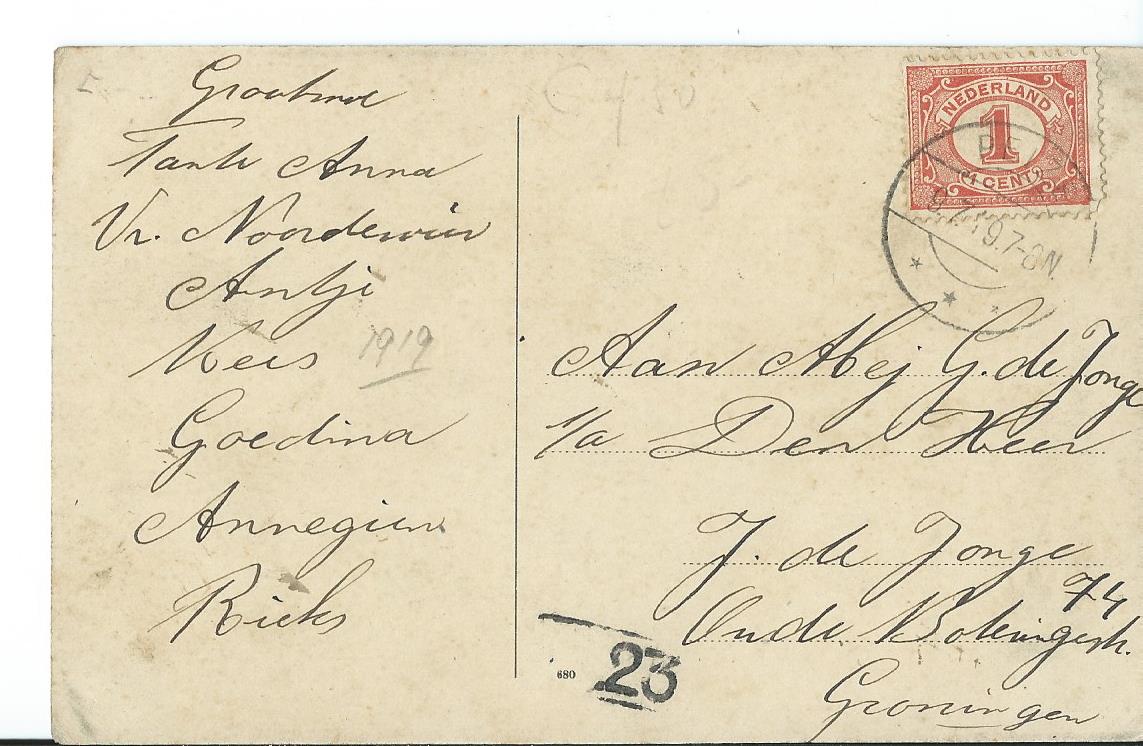 Grootmoe
Tante Anna
Vr. Noordewier
Antje
Kees
1919
Goedina
Annegien
Rieks
NEDERLAND
1
1 CENT
7-8N
Aan Mej G. de Jonge
p/a Den Heer
J. de Jonge
74
Oude Boteringestr.
Groningen
680
23